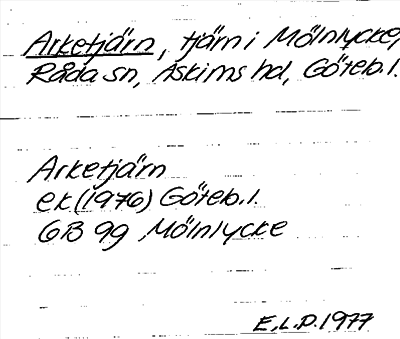 Arketjärn, tjärn i Mölnlycke,
Råda sn, Askims hd, Göteb. l.
Arketjärn
ek (1976) Göteb. l.
GB 99 Mölnlycke
E.L.D. 1977